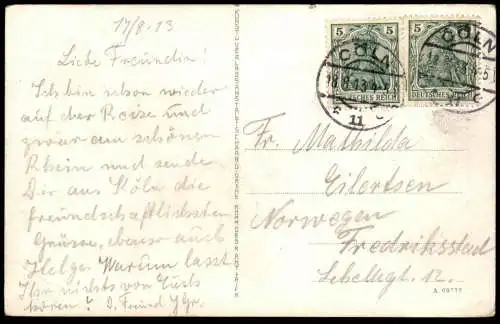 17/8 - 13
Liebe Freundin!
Ich bin schon wieder
auf der Reise und
zwar am schönen
Rhein und sende
Dir aus Köln die
freundschaftlichsten
Grüsse, ebenso auch
Helge. Warum lasst
Ihr nichts von Euch
hören? D. Freund
5 5
DEUTSCHES REICH
5 5
DEUTSCHES REICH
CÖLN
11
CÖLN
Fr. Mathilda
Eilertsen
Norwegen
Fredriksstad
12.